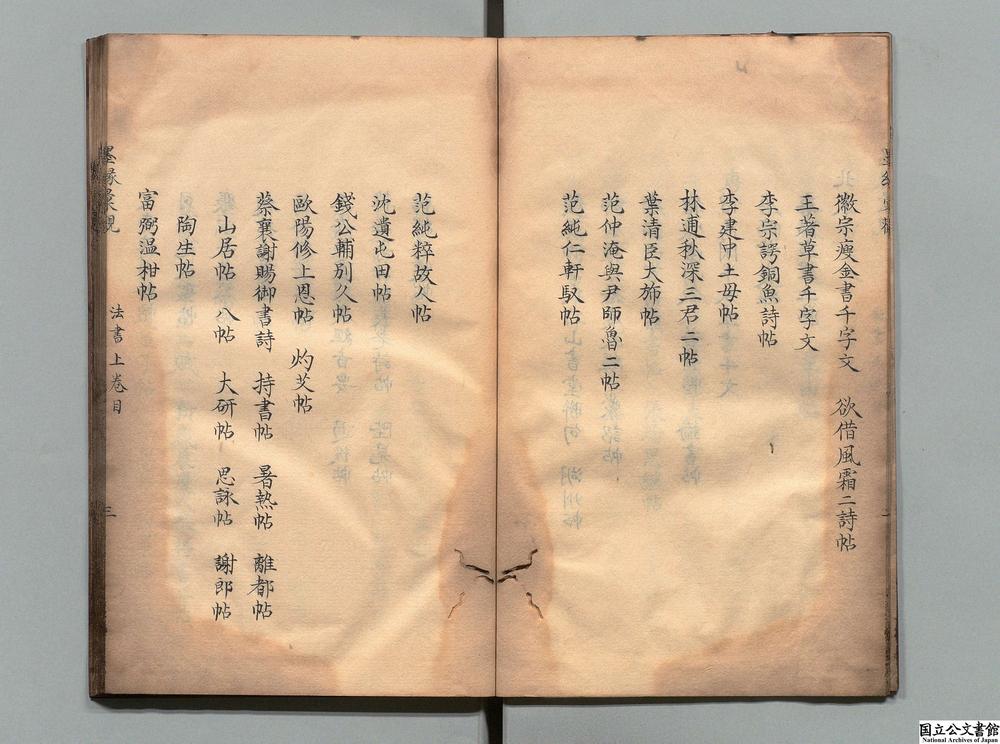 徽宗瘦金書千字文　欲借風霜二詩帖
王著草書千字文
李宗諤銅魚詩帖
李建中土母帖
林逋秋深三君二帖
葉清臣大旆帖
范仲淹與尹師魯二帖
范純仁軒馭帖
范純粹故人帖
沈遘屯田帖
錢公輔別久帖
歐陽修上恩帖　灼艾帖
蔡襄謝賜御書詩　持書帖　暑熱帖　離都帖
山居帖　八帖　大研帖　思詠帖　謝郎帖
陶生帖
富弼温柑帖
墨緣彙觀　法書上卷目　三
国立公文書館
National Archives of Japan